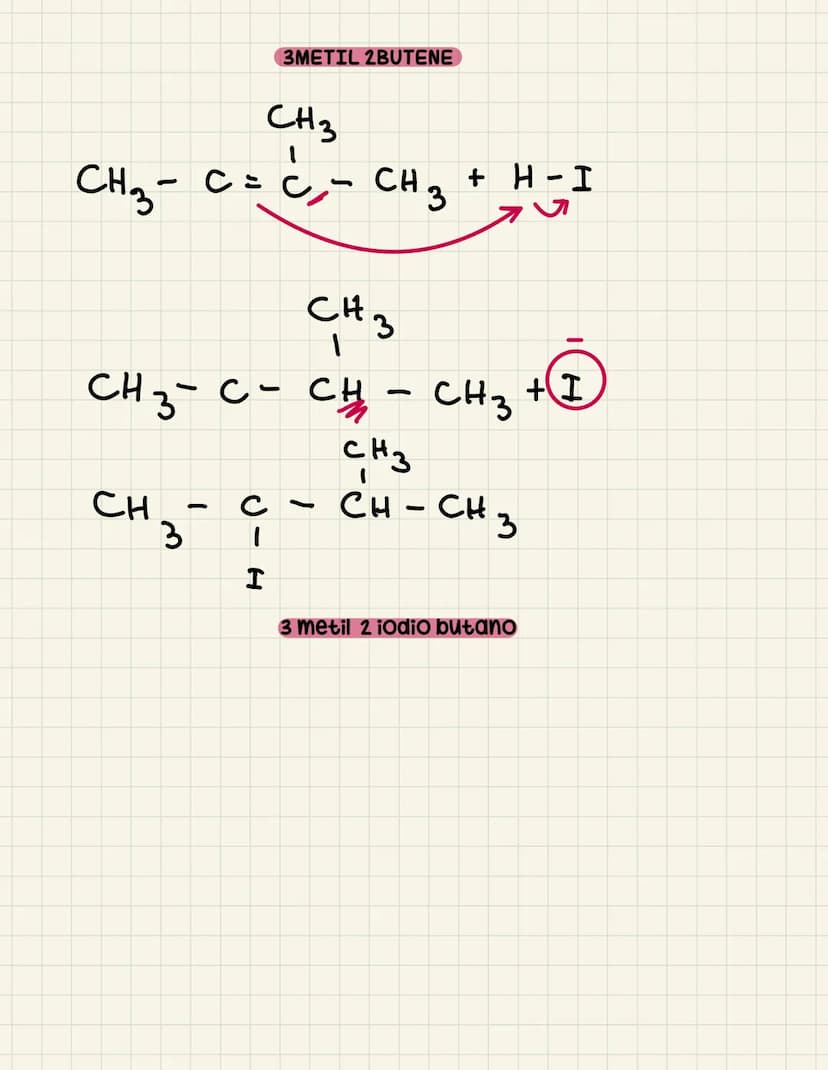 3METIL 2BUTENE
CH3
CH3 - C = C - CH3 + H - I
CH3
CH3 - C - CH - CH3 + I -
CH3
CH3 - C - CH - CH3
I
3 metil 2 iodio butano